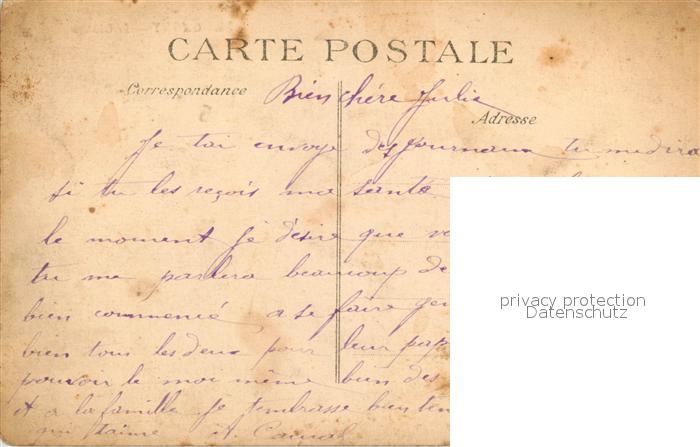 CARTE POSTALE
Correspondance
Bien chére Julie
Adresse
Je tai envoye des journaux tu me dira
si tu les reçois ma santé
le moment je désire que
tu me parlera beaucoup de
bien commencé a se faire
bien tous les deux pour leur
pouvoir le moi même bien des
et a la famille Je tembrasse bien
qui taime A.
privacy protection
Datenschutz